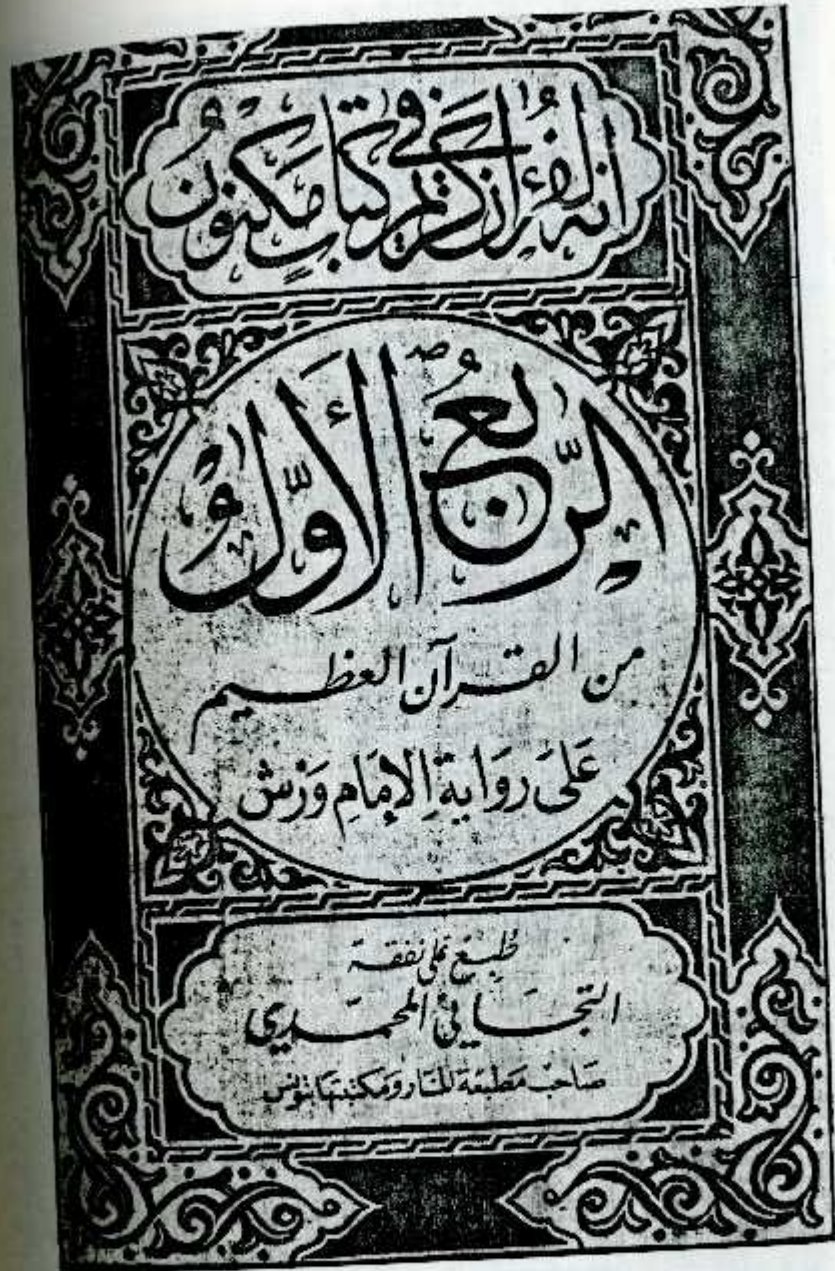 انه لقرءان كريم في كتاب مكنون
الربع الأول
من القرآن العظيم
على رواية الإمام ورش
طبع على نفقة
التجاني المحمدي
صاحب مطبعة المنار ومكتبتها بتونس